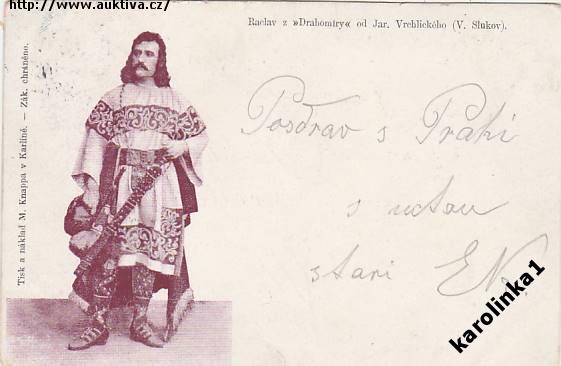 http://www.auktiva.cz/
Raclav z »Drahomíry« od Jar. Vrchlického (V. Slukov).
Tisk a náklad M. Knappa v Karlíně. — Zák. chráněno.
Pozdrav s Prahi
s uctou
stari EN.
karolinka1